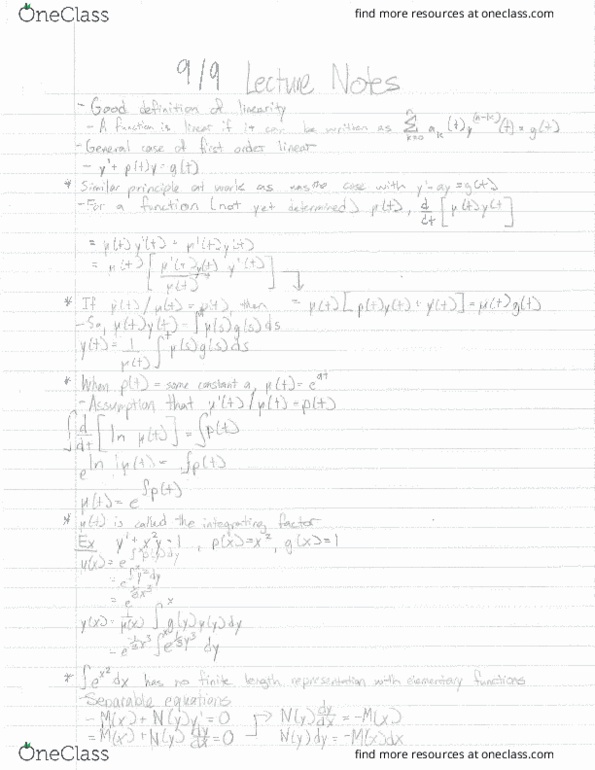 OneClass
find more resources at oneclass.com
9/9 Lecture Notes
- Good definition of linearity
- A function is linear if it can be written as Σ_{k=0}^{n} a_k(t)y^{(n-k)}(t) = g(t)
- General case of first order linear
- y' + p(t)y = g(t)
* Similar principle at work as was the case with y' - ay = g(t)
- For a function (not yet determined) μ(t), d/dt [μ(t)y(t]
= μ(t)y'(t) + μ'(t)y(t)
= μ(t) [μ'(t)y(t)/μ(t) + y'(t)]
* If μ'(t)/μ(t) = p(t), then = μ(t)[p(t)y(t) + y'(t)] = μ(t)g(t)
- So, μ(t)y(t) = ∫^t μ(s)g(s)ds
y(t) = 1/μ(t) ∫^t μ(s)g(s)ds
* When p(t) = some constant a, μ(t) = e^{at}
- Assumption that μ'(t)/μ(t) = p(t)
∫ d/dt [ln μ(t)] = ∫p(t)
e^{ln |μ(t)} = ∫p(t)
μ(t) = e^{∫p(t)}
* μ(t) is called the integrating factor
Ex y' + x²y = 1, p(x) = x², g(x) = 1
μ(x) = e^{∫^x p(y)dy}
= e^{∫^x y² dy}
= e^{1/3 x³}
y(x) = 1/μ(x) ∫^x g(y)μ(y)dy
= e^{-1/3 x³} ∫^x e^{1/3 y³} dy
* ∫e^{x²}dx has no finite length representation with elementary functions
- Separable equations
- M(x) + N(y)y' = 0 → N(y) dy/dx = -M(x)
= M(x) + N(y) dy/dx = 0 N(y)dy = -M(x)dx
OneClass
find more resources at oneclass.com